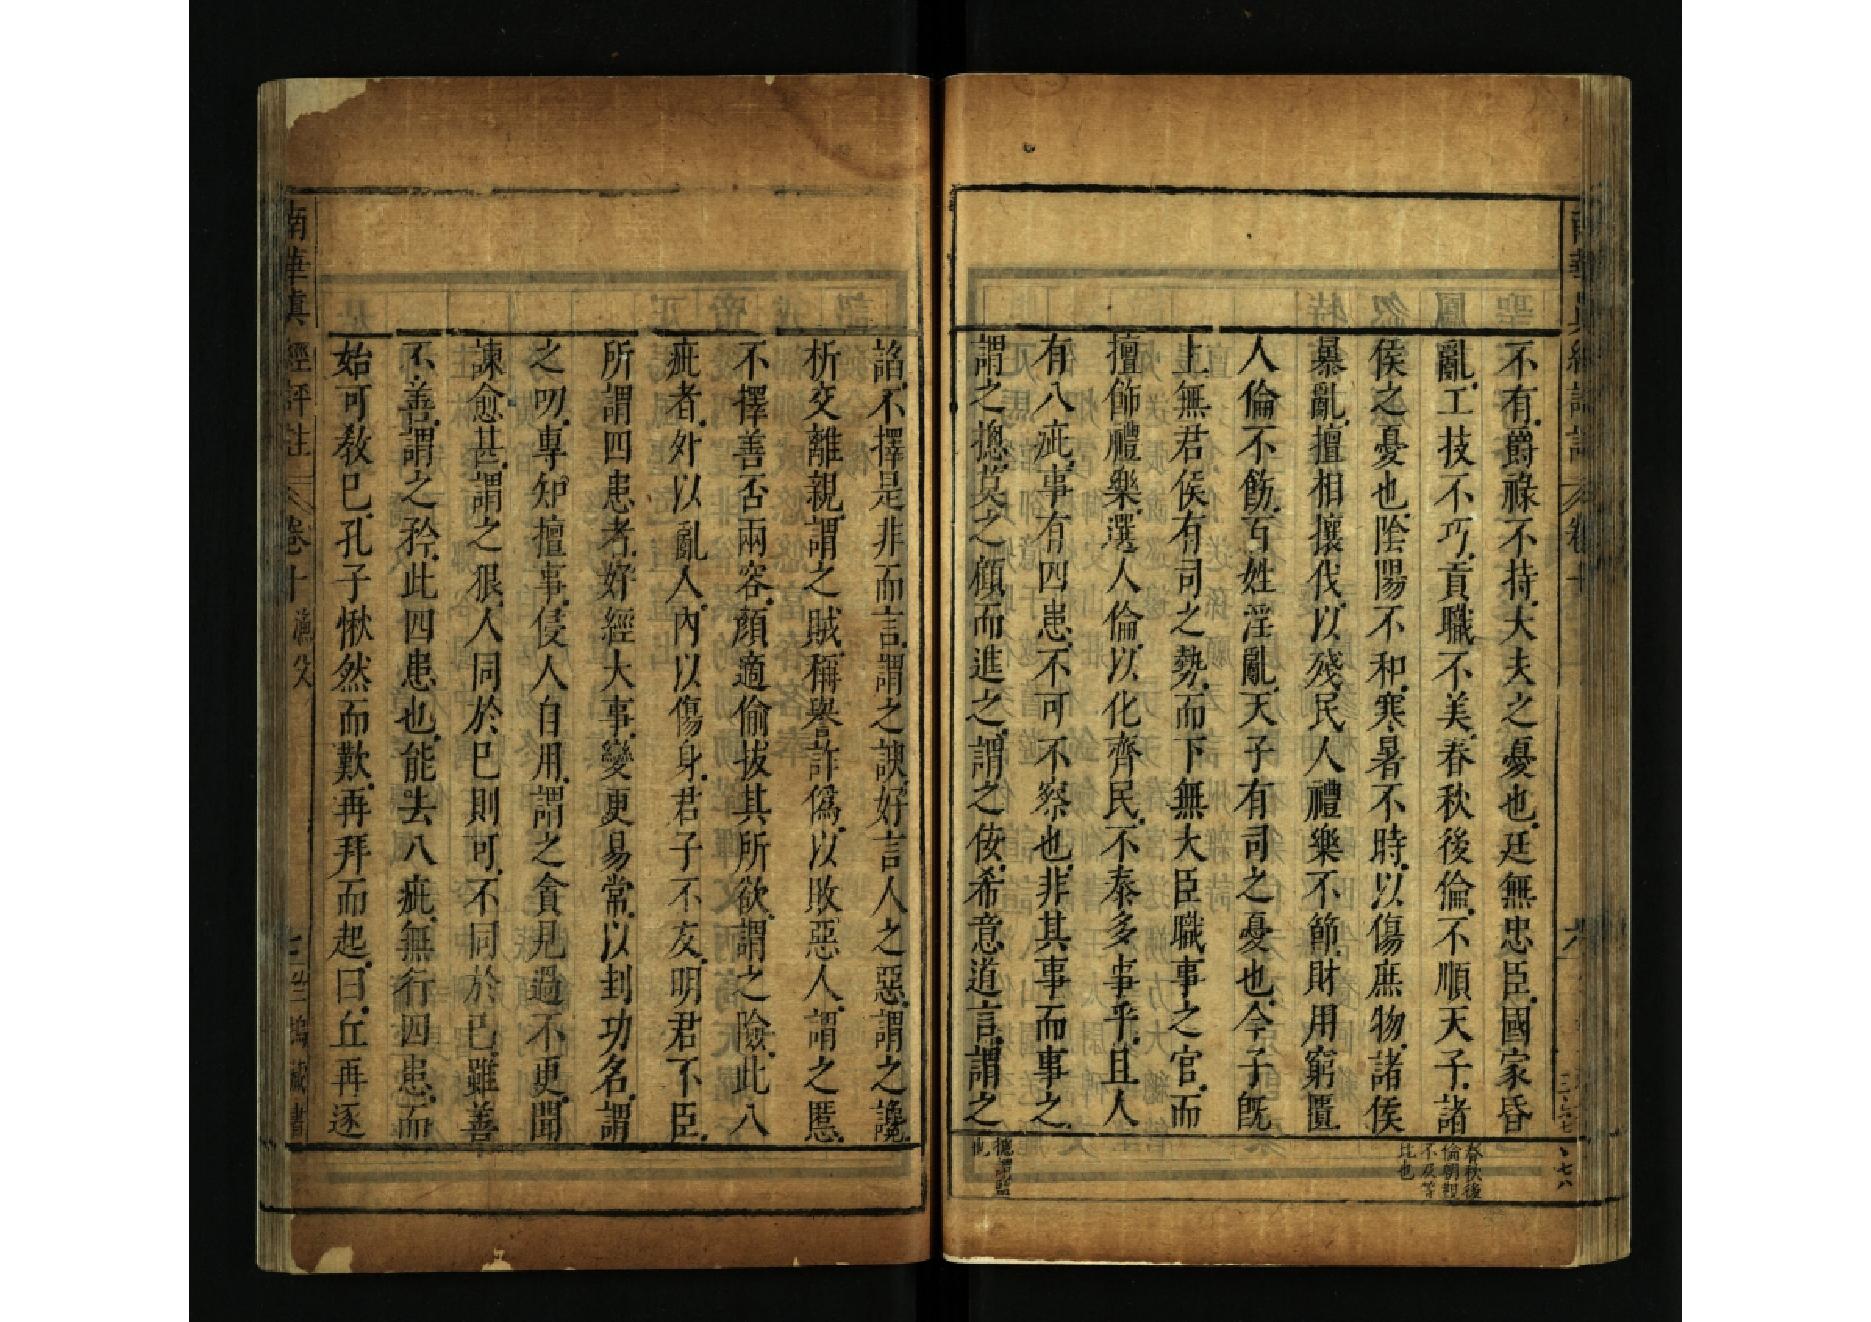 不有爵祿不持大夫之憂也廷無忠臣國家昏
亂工技不巧貢職不美春秋後倫不順天子諸
侯之憂也陰陽不和寒暑不時以傷庶物諸侯
暴亂擅相攘伐以殘民人禮樂不節財用窮匱
人倫不飭百姓淫亂天子有司之憂也今子旣
上無君侯有司之勢而下無大臣職事之官而
擅飾禮樂選人倫以化齊民不泰多事乎且人
有八疵事有四患不可不察也非其事而事之
謂之摠莫之顧而進之謂之佞希意道言謂之
春秋後
倫朝覲
不及等
比也
摠謂監
也
諂不擇是非而言謂之諛好言人之惡謂之讒
析交離親謂之賊稱譽詐僞以敗惡人謂之慝
不擇善否兩容顏適偷拔其所欲謂之險此八
疵者外以亂人內以傷身君子不友明君不臣
所謂四患者好經大事變更易常以封功名謂
之叨專知擅事侵人自用謂之貪見過不更聞
諫愈甚謂之狠人同於已則可不同於已雖善
不善謂之矜此四患也能去八疵無行四患而
始可教已孔子愀然而歎再拜而起曰丘再逐
南華眞經評註 卷十 漁父